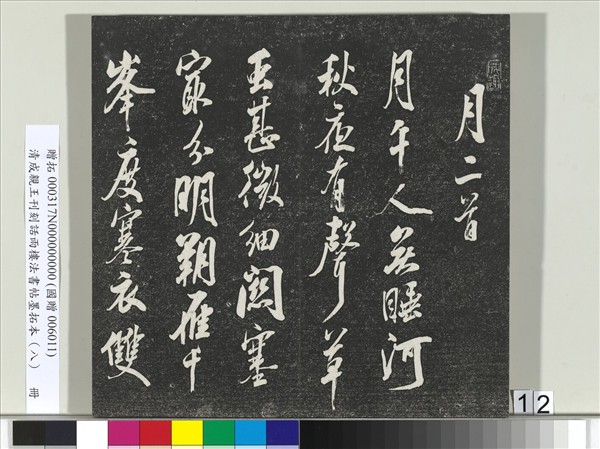 月二首
月午人無睡河
秋夜有聲草
虫甚微細關塞
冣分明朔雁千
峯度寒衣雙
贈拓 000317N000000000(國贈 006011)
清成親王刊刻話雨樓法書帖墨拓本（八） 冊
12